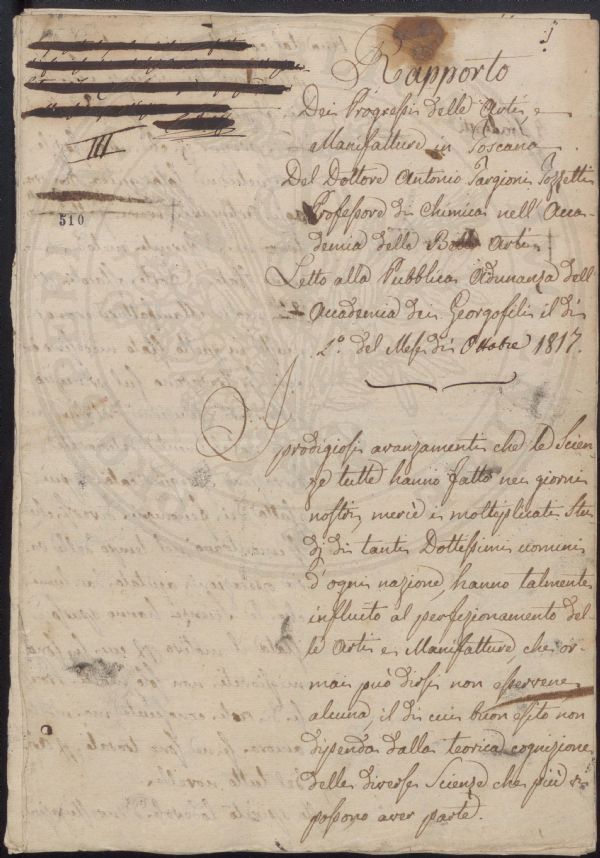 1
Rapporto
Dei Progressi delle Arti, e
Manifatture in Toscana
Del Dottore Antonio Targioni Tozzetti
Professore di Chimica nell' Acca-
demia delle Belle Arti
Letto alla Pubblica Adunanza dell'
Accademia dei Georgofili il dì
2.º del Mese di Ottobre 1817.
III
510
I
prodigiosi avanzamenti che le Scien-
ze tutte hanno fatto nei giorni
nostri mercè i moltiplicati Stu-
dj di tanti Dottissimi uomini
d'ogni nazione, hanno talmente
influito al perfezionamento del-
le Arti e Manifatture, che or-
mai può dirsi non esservene
alcuna, il di cui buon esito non
dipenda dalla teorica cognizione
delle diverse Scienze che più vi
possono aver parte.